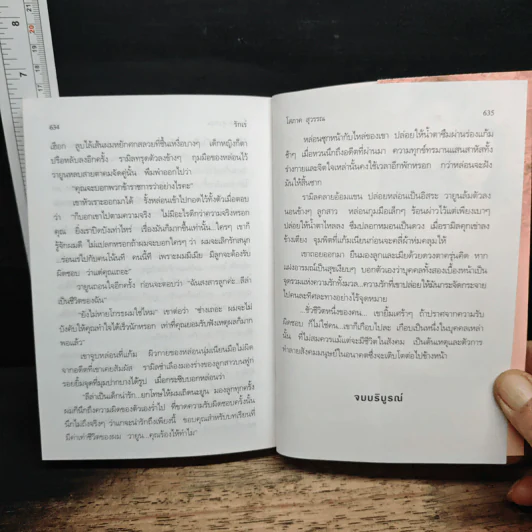 8
7
20
19
18
17
634
รักเร่
เฮือก สูบไล้เส้นผมหยิกตกสลวยที่ชื้นเหงื่อบางๆ เด็กหญิงก็ตา
ปรือหลับลงอีกครั้ง รามิลทรุดตัวลงข้างๆ กุมมือของหล่อนไว้
วายูนหลบสายตาคมจัดคู่นั้น พึมพำออกไปว่า
“คุณจะบอกพวกข้าราชการว่าอย่างไรคะ”
เขาหัวเราะออกมาได้ รั้งหล่อนเข้าไปกอดไว้ทั้งตัวเมื่อตอบ
ว่า “ก็บอกเขาไปตามความจริง ไม่มีอะไรดีกว่าความจริงหรอก
คุณ ยิ่งเราปิดบังเท่าไหร่ เรื่องมันก็มากขึ้นเท่านั้น..ใครๆ เขาก็
รู้จักผมดี ไม่แปลกหรอกถ้าผมจะบอกใครๆ ว่า ผมจะเลิกรักสนุก
...ร่อนเร่ไปกับคนโน้นที คนนี้ที เพราะผมมีเมีย มีลูกจะต้องรับ
ผิดชอบ ว่าแต่คุณเถอะ”
วายูนถอนใจอีกครั้ง ก่อนจะตอบว่า “ฉันสงสารลูกค่ะ..ลีล่า
เป็นชีวิตของฉัน”
“ยังไม่หายโกรธผมใช่ไหม” เขาต่อว่า “ช่างเถอะ ผมจะไม่
บังคับให้คุณทำใจได้เร็วนักหรอก เท่าที่คุณยอมรับฟังเหตุผลก็มาก
พอแล้ว”
เขาจูบหล่อนที่แก้ม ผิวกายของหล่อนนุ่มเนียนมือไม่ผิด
จากอดีตที่เขาเคยสัมผัส รามิลชำเลืองมองร่างของลูกสาวบนฟูก
รอยยิ้มจุดที่มุมปากบางได้รูป เมื่อกระซิบบอกหล่อนว่า
“ลีล่าเป็นเด็กน่ารัก..ยกโทษให้ผมเถิดนะยูน มองลูกทุกครั้ง
ผมก็นึกถึงความผิดของตัวเองร่ำไป ที่ขาดความรับผิดชอบครั้งนั้น
นึกไม่ถึงจริงๆ ว่าแกจะน่ารักถึงเพียงนี้ ขอบคุณสำหรับบทเรียนที่
มีค่าเท่าชีวิตของผม วายูน..คุณร้องไห้ทำไม”
โสภาค สุวรรณ
635
หล่อนซุกหน้ากับไหล่ของเขา ปล่อยให้น้ำตาซึมผ่านร่องแก้ม
ช้าๆ เมื่อหวนนึกถึงอดีตที่ผ่านมา ความทุกข์ทรมานแสนสาหัสทั้ง
ร่างกายและจิตใจเหล่านั้นคงใช้เวลาอีกพักหรอก กว่าหล่อนจะฝัง
มันให้สิ้นซาก
รามิลคลายอ้อมแขน ปล่อยหล่อนเป็นอิสระ วายูนล้มตัวลง
นอนข้างๆ ลูกสาว หล่อนกุมมือเล็กๆ ร้อนผ่าวไว้แต่เพียงเบาๆ
ปล่อยให้น้ำตาไหลลง ซึมปลอกหมอนเป็นดวง เมื่อรามิลคุกเข่าลง
ข้างเตียง จุมพิตที่แก้มเนียนก่อนจะคลี่ผ้าห่มคลุมให้
เขาถอยออกมา ยืนมองลูกและเมียด้วยดวงตาครุ่นคิด หาก
แฝงอารมณ์เป็นสุขเงียบๆ บอกตัวเองว่าบุคคลทั้งสองเบื้องหน้าเป็น
จุดรวมแห่งความรักทั้งมวล..ความรักที่เขาปล่อยให้มันกระจัดกระจาย
ไปคนละทิศละทางอย่างไร้จุดหมาย
...ชั่วชีวิตหนึ่งของคน.. เขายิ้มเศร้าๆ ถ้าปราศจากความรับ
ผิดชอบ ก็ไม่ใช่คน..เขาก็เกือบไปละ เกือบเป็นหนึ่งในบุคคลเหล่า
นั้น ที่ไม่สมควรแม้แต่จะมีชีวิตในสังคม เป็นต้นเหตุและตัวการ
ทำลายสังคมมนุษย์ในอนาคตซึ่งจะเติบโตต่อไปข้างหน้า
จบบริบูรณ์